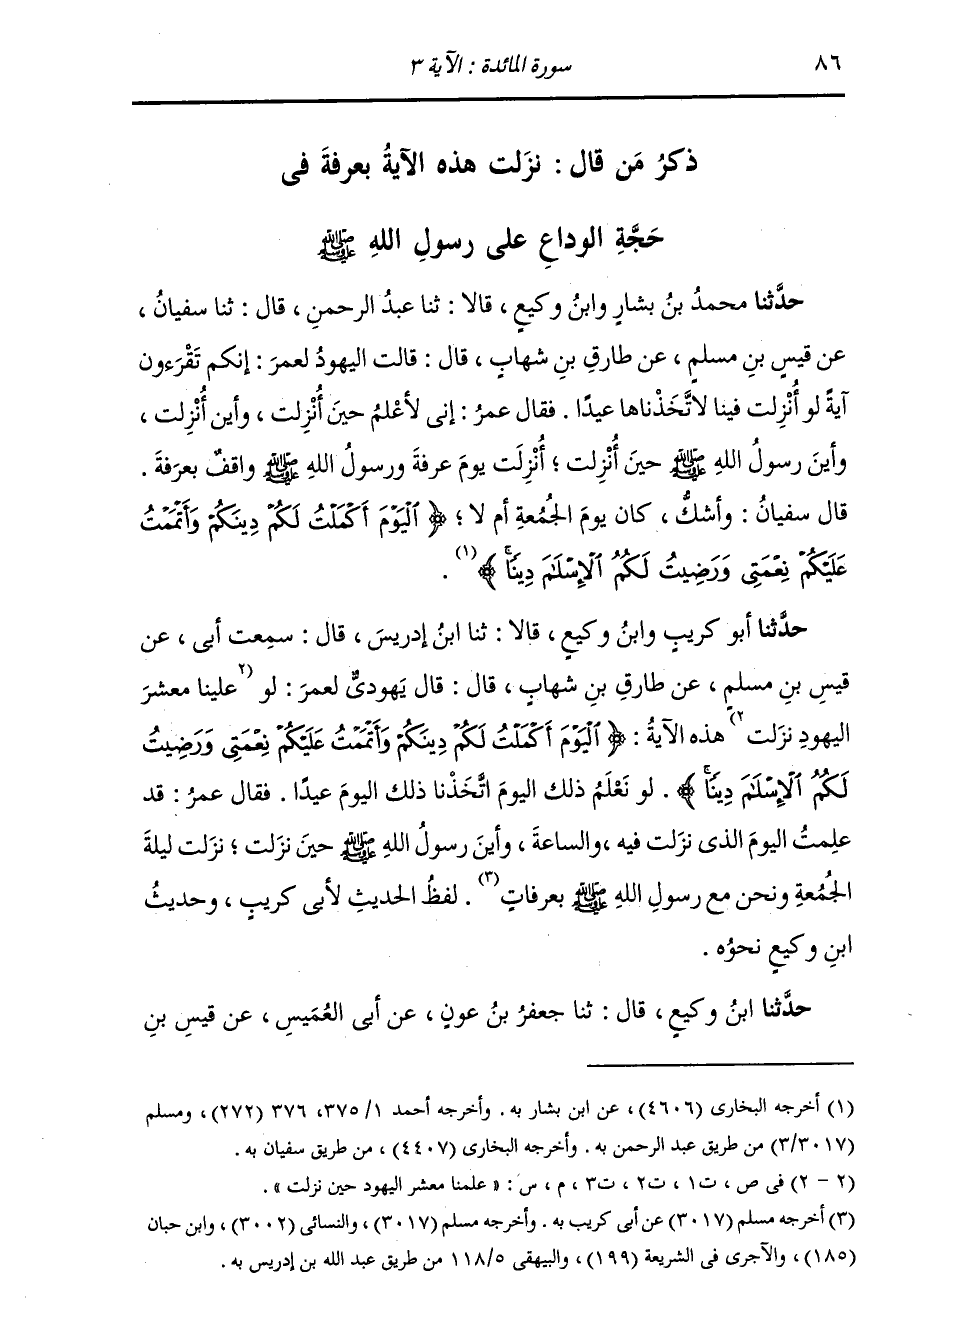 ٨٦
سورة المائدة : الآية ٣
ذكرُ مَن قال : نزَلت هذه الآيةُ بعرفةَ فى
حَجَّةِ الوداعِ على رسولِ اللهِ ﷺ
حدَّثنا محمدُ بنُ بشارٍ وابنُ وكيعٍ ، قالا : ثنا عبدُ الرحمنِ ، قال : ثنا سفيانُ ،
عن قيسِ بنِ مسلمٍ ، عن طارقِ بنِ شهابٍ ، قال : قالت اليهودُ لعمرَ : إنكم تَقْرَءون
آيةً لو أُنْزِلت فينا لاتَّخَذْناها عيدًا . فقال عمرُ : إنى لأعْلمُ حينَ أُنْزِلت ، وأين أُنْزِلت ،
وأينَ رسولُ اللهِ ﷺ حينَ أُنْزِلت ؛ أُنْزِلَت يومَ عرفةَ ورسولُ اللهِ ﷺ واقفٌ بعرَفةَ .
قال سفيانُ : وأشكُّ ، كان يومَ الجُمُعةِ أم لا ؛ ﴿ ٱلْيَوْمَ أَكْمَلْتُ لَكُمْ دِينَكُمْ وَأَتْمَمْتُ
عَلَيْكُمْ نِعْمَتِى وَرَضِيتُ لَكُمُ ٱلْإِسْلَٰمَ دِينًاۚ ﴾(١) .
حدَّثنا أبو كريبٍ وابنُ وكيعٍ ، قالا : ثنا ابنُ إدريسَ ، قال : سمِعت أبى ، عن
قيسِ بنِ مسلمٍ ، عن طارقِ بنِ شهابٍ ، قال : قال يَهودىٌّ لعمرَ : لو (٢علينا معشرَ
اليهودِ نزَلت٢) هذه الآيةُ : ﴿ ٱلْيَوْمَ أَكْمَلْتُ لَكُمْ دِينَكُمْ وَأَتْمَمْتُ عَلَيْكُمْ نِعْمَتِى وَرَضِيتُ
لَكُمُ ٱلْإِسْلَٰمَ دِينًاۚ ﴾ . لو نَعْلَمُ ذلك اليومَ اتَّخَذْنا ذلك اليومَ عيدًا . فقال عمرُ : قد
علِمتُ اليومَ الذى نزَلت فيه ،والساعةَ ، وأينَ رسولُ اللهِ ﷺ حينَ نزَلت ؛ نزَلت ليلةَ
الجُمُعةِ ونحن مع رسولِ اللهِ ﷺ بعرفاتٍ(٣) . لفظُ الحديثِ لأبى كريبٍ ، وحديثُ
ابنِ وكيعٍ نحوُه .
حدَّثنا ابنُ وكيعٍ ، قال : ثنا جعفرُ بنُ عونٍ ، عن أبى العُمَيسِ ، عن قيسِ بنِ
(١) أخرجه البخارى (٤٦٠٦)، عن ابن بشار به . وأخرجه أحمد ٣٧٥/١، ٣٧٦ (٢٧٢)، ومسلم
(٣/٣٠١٧) من طريق عبد الرحمن به . وأخرجه البخارى (٤٤٠٧) ، من طريق سفيان به .
(٢ - ٢) فى ص ، ت١ ، ت٢ ، ت٣ ، م ، س : « علمنا معشر اليهود حين نزلت » .
(٣) أخرجه مسلم (٣٠١٧) عن أبى كريب به . وأخرجه مسلم (٣٠١٧)، والنسائى (٣٠٠٢)، وابن حبان
(١٨٥)، والآجرى فى الشريعة (١٩٩)، والبيهقى ١١٨/٥ من طريق عبد الله بن إدريس به .